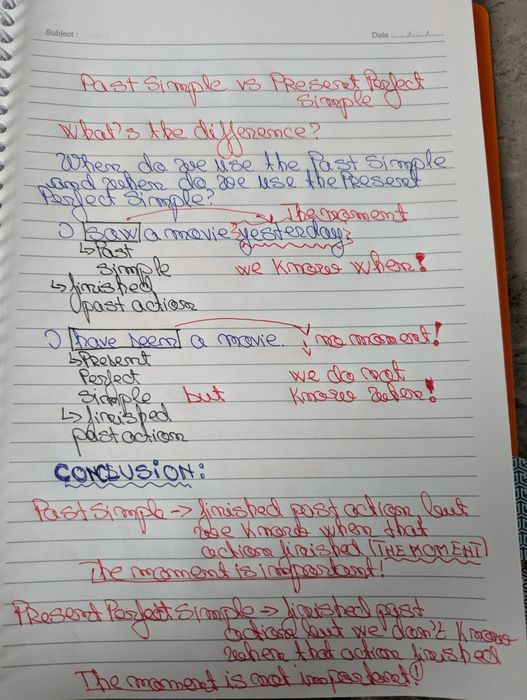 Subject :
Date :....../....../......
Past Simple vs Present Perfect
Simple
What's the difference?
When do we use the Past Simple
and when do we use the Present
Perfect Simple?
The moment
I saw a movie {yesterday}
↳ Past
simple
we know when!
↳ finished
past action
I have seen a movie.
no moment!
↳ Present
Perfect
we do not
simple
but
know when!
↳ finished
past action
CONCLUSION:
Past Simple → finished past action but
we know when that
action finished (THE MOMENT)
The moment is important!
Present Perfect Simple → finished past
action but we don't know
when that action finished
The moment is not important!